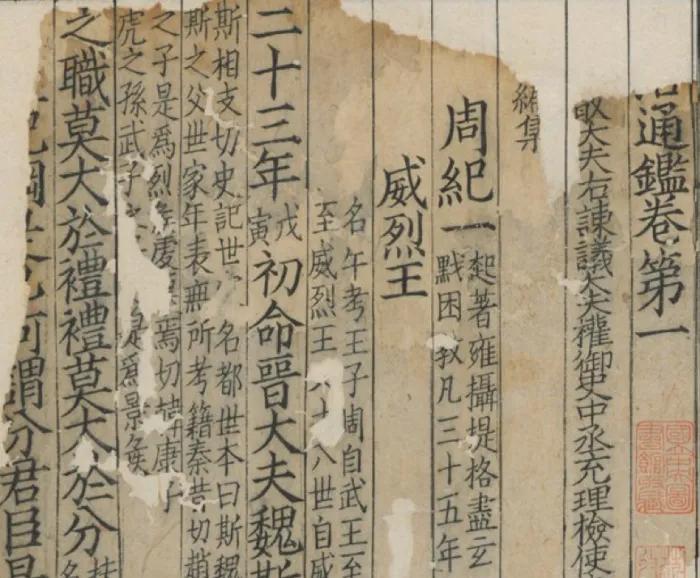 通鑑卷第一
大夫右諫議大夫權御史中丞充理檢使
編集
周紀一 起著雍攝提格盡玄
黓困敦凡三十五年
威烈王
名午考王子周自武王至
至威烈王 八世自威
二十三年 戊寅 初命晉大夫魏斯
斯相支切史記世 名都世本曰斯魏
斯之父世家年表無所考籍秦昔切趙
之子是爲烈矦虔 焉切韓康子
虎之孫武子 是爲景矦
之職莫大於禮禮莫大於分
何謂分君臣是